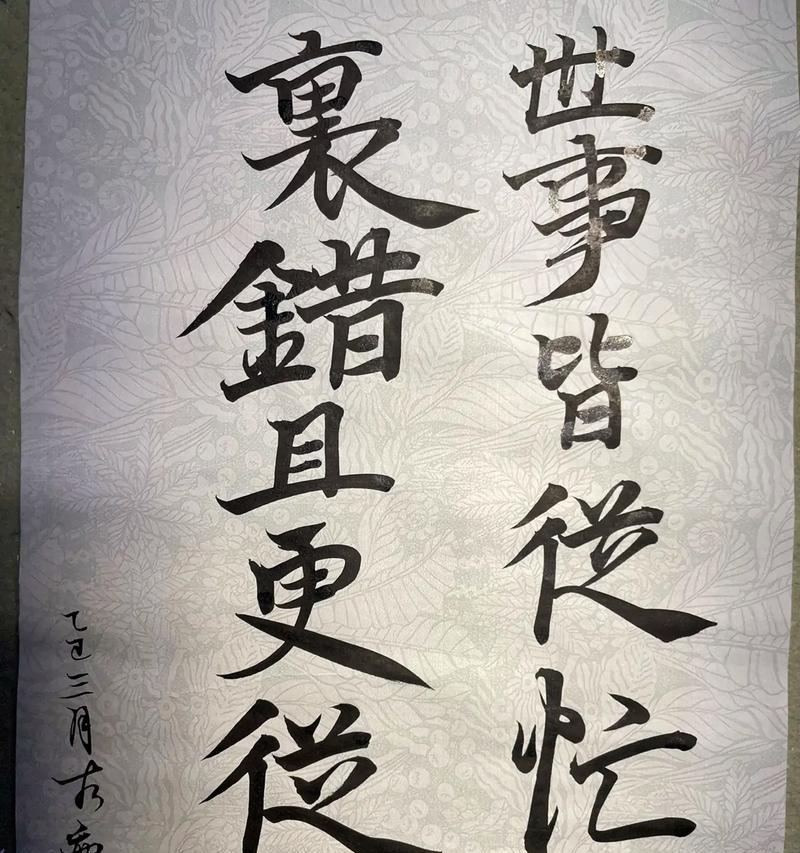 世事皆從忙
裏錯且更從
乙巳三月古